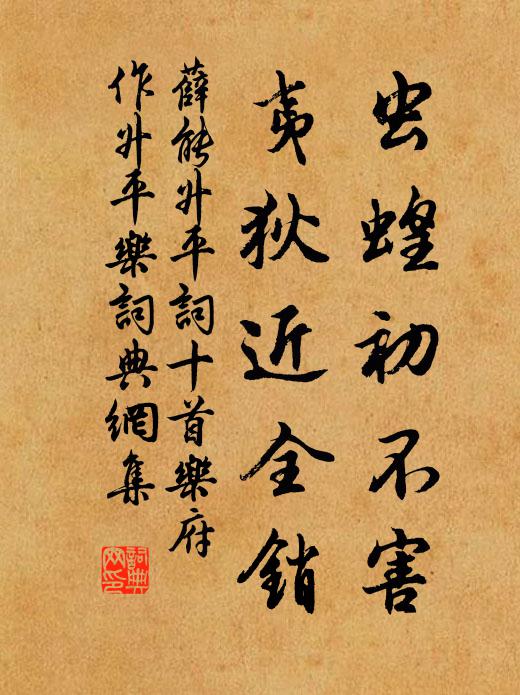 虫蝗初不害
夷狄近全銷
薛能升平詞十首樂府
作升平樂詞典網集
詞典網印